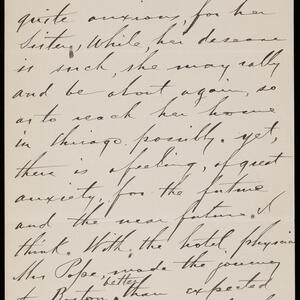 quite anxious, for her
Sister, While, her desease
is such, she may rally
and be about again, so
as to reach her home
in Chicago possibly. yet,
there is a feeling, of great
anxiety, for the future
and the near future. I
think. With, the hotel, physician
Mrs Pope, made the journey
to Boston better than expected